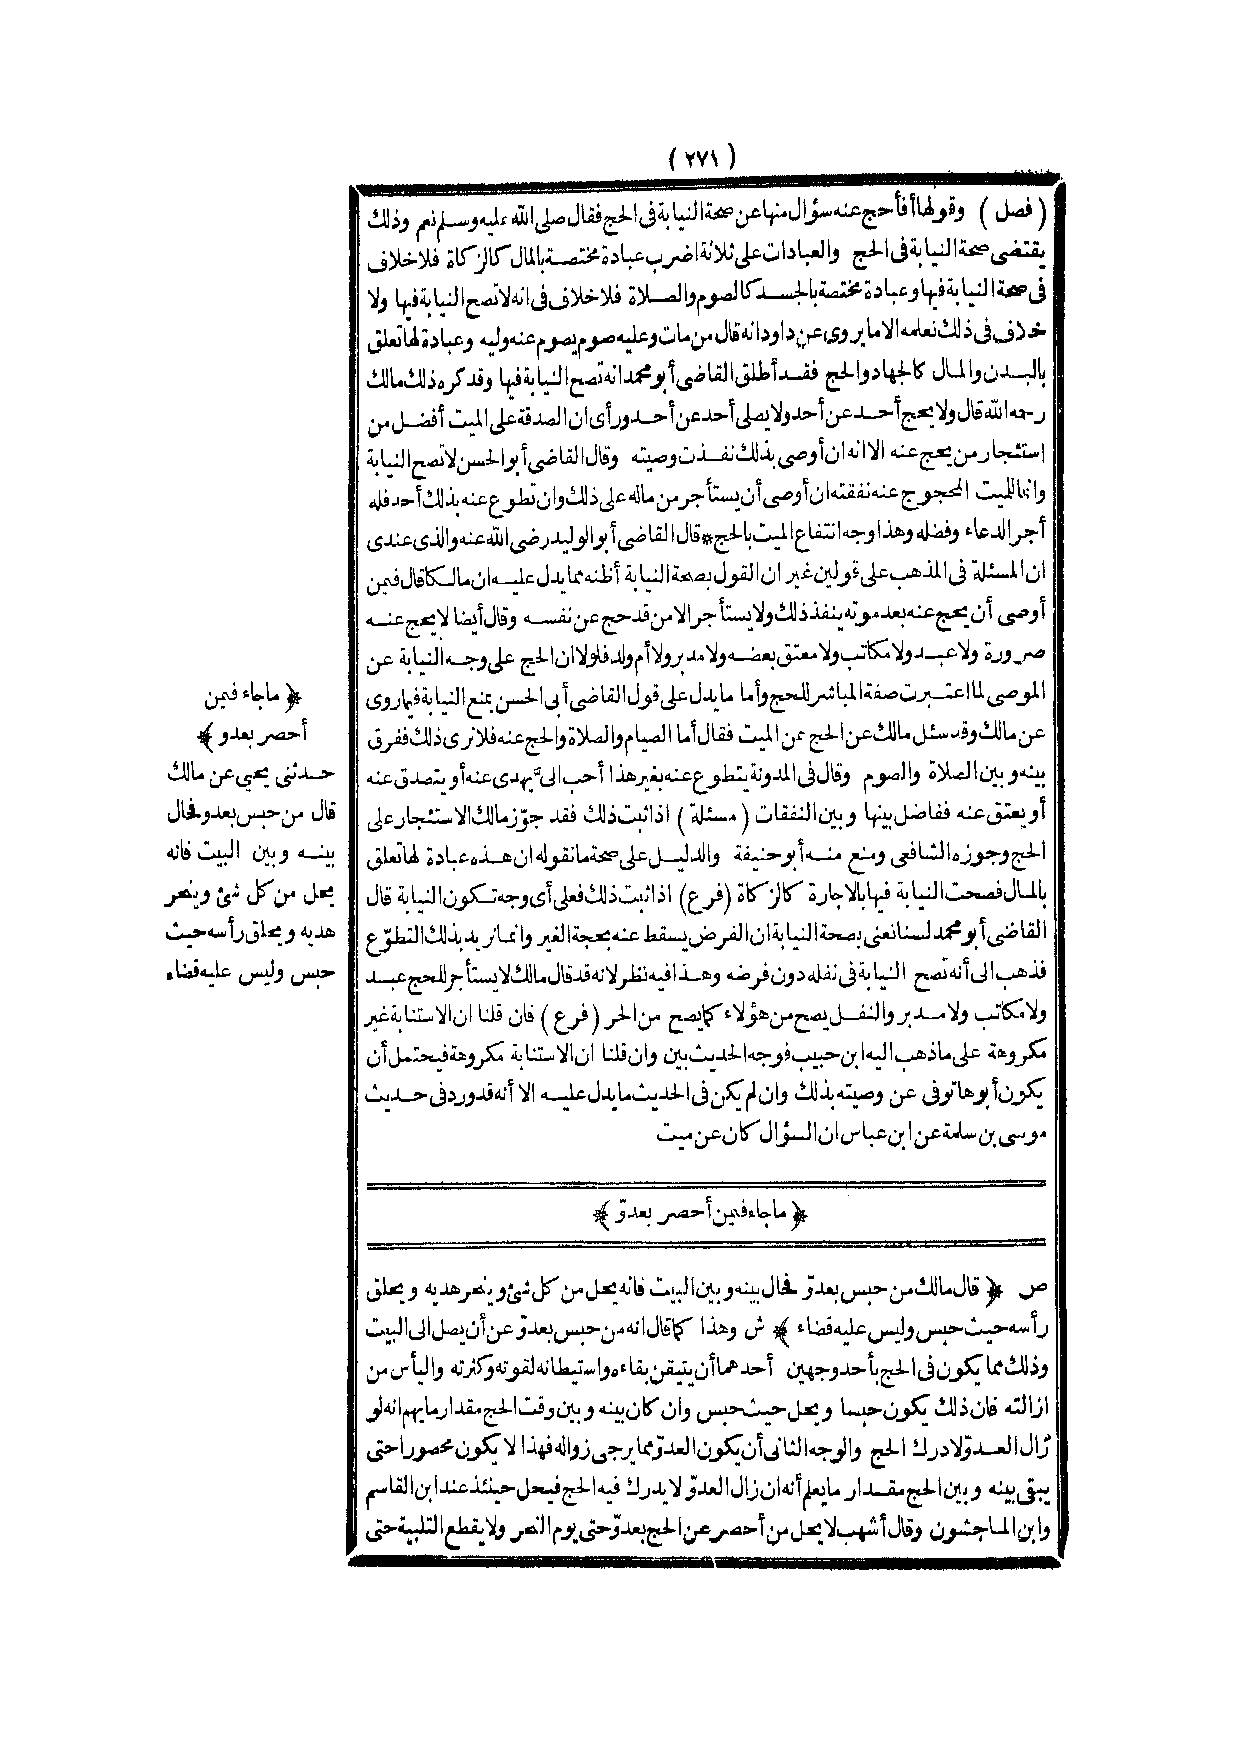 ( ٢٧١ )
( فصل ) وقولها أفأحج عنه سؤال منها عن صحة النيابة فى الحج فقال صلى الله عليه وسلم نعم وذلك
يقتضى صحة النيابة فى الحج والعبادات على ثلاثة اضرب عبادة مختصة بالمال كالزكاة فلا خلاف
فى صحة النيابة فيها وعبادة مختصة بالجسد كالصوم والصلاة فلا خلاف فى انه لا تصح النيابة فيها ولا
خلاف فى ذلك نعلمه الا ما يروى عن داود انه قال من مات وعليه صوم يصوم عنه وليه وعبادة لها تعلق
بالبدن والمال كالجهاد والحج فقد أطلق القاضى أبو محمد انه تصح النيابة فيها وقد كره ذلك مالك
رحمه الله قال ولا يحج أحد عن أحد ولا يصلى أحد عن أحد ورأى ان الصدقة على الميت أفضل من
استئجار من يحج عنه الا انه ان أوصى بذلك نفذت وصيته وقال القاضى أبو الحسن لا تصح النيابة
وانما للميت المحجوج عنه نفقته ان أوصى أن يستأجر من ماله على ذلك وان تطوع عنه بذلك أحد فله
أجر الدعاء وفضله وهذا وجه انتفاع الميت بالحج * قال القاضى أبو الوليد رضى الله عنه والذى عندى
ان المسئلة فى المذهب على قولين غير ان القول بصحة النيابة أظنه مما يدل عليه ان مالكا قال فيمن
أوصى أن يحج عنه بعد موته ينفذ ذلك ولا يستأجر الا من قد حج عن نفسه وقال أيضا لا يحج عنه
صرورة ولا عبد ولا مكاتب ولا معتق بعضه ولا مدبر ولا أم ولد فلولا ان الحج على وجه النيابة عن
الموصى لما اعتبرت صفة المباشر للحج وأما ما يدل على قول القاضى أبى الحسن بمنع النيابة فيما روى
عن مالك وقد سئل مالك عن الحج عن الميت فقال أما الصيام والصلاة والحج عنه فلا نرى ذلك ففرق
بينه وبين الصلاة والصوم وقال فى المدونة يتطوع عنه بغير هذا أحب الىّ يهدى عنه أو يتصدق عنه
أو يعتق عنه ففاضل بينها وبين النفقات ( مسئلة ) اذا ثبت ذلك فقد جوّز مالك الاستئجار على
الحج وجوزه الشافعى ومنع منه أبو حنيفة والدليل على صحة ما نقوله ان هذه عبادة لها تعلق
بالمال فصحت النيابة فيها بالاجارة كالزكاة ( فرع ) اذا ثبت ذلك فعلى أى وجه تكون النيابة قال
القاضى أبو محمد لسنا نعنى بصحة النيابة ان الفرض يسقط عنه بحجة الغير وانما نريد بذلك التطوّع
فذهب الى أنه تصح النيابة فى نفله دون فرضه وهذا فيه نظر لانه قد قال مالك لا يستأجر للحج عبد
ولا مكاتب ولا مدبر والنفل يصح من هؤلاء كما يصح من الحر ( فرع ) فان قلنا ان الاستنابة غير
مكروهة على ما ذهب اليه ابن حبيب فوجه الحديث بين وان قلنا ان الاستنابة مكروهة فيحتمل أن
يكون أبوها توفى عن وصيته بذلك وان لم يكن فى الحديث ما يدل عليه الا أنه قد ورد فى حديث
موسى بن سلمة عن ابن عباس ان السؤال كان عن ميت
﴿ ما جاء فيمن
أحصر بعدو ﴾
حدثنى يحيى عن مالك
قال من حبس بعدو فحال
بينه وبين البيت فانه
يحل من كل شئ وينحر
هديه ويحلق رأسه حيث
حبس وليس عليه قضاء
﴿ ما جاء فيمن أحصر بعدوّ ﴾
ص ﴿ قال مالك من حبس بعدوّ فحال بينه وبين البيت فانه يحل من كل شئ وينحر هديه ويحلق
رأسه حيث حبس وليس عليه قضاء ﴾ ش وهذا كما قال انه من حبس بعدوّ عن أن يصل الى البيت
وذلك مما يكون فى الحج بأحد وجهين أحدهما أن يتيقن بقاءه واستيطانه لقوته وكثرته واليأس من
ازالته فان ذلك يكون حبسا ويحل حيث حبس وان كان بينه وبين وقت الحج مقدار ما يهم انه لو
زال العدوّ لادرك الحج والوجه الثانى أن يكون العدوّ مما يرجى زواله فهذا لا يكون محصورا حتى
يبقى بينه وبين الحج مقدار ما يعلم أنه ان زال العدوّ لا يدرك فيه الحج فيحل حينئذ عند ابن القاسم
وابن الماجشون وقال أشهب لا يحل من أحصر عن الحج بعدوّ حتى يوم النحر ولا يقطع التلبية حتى